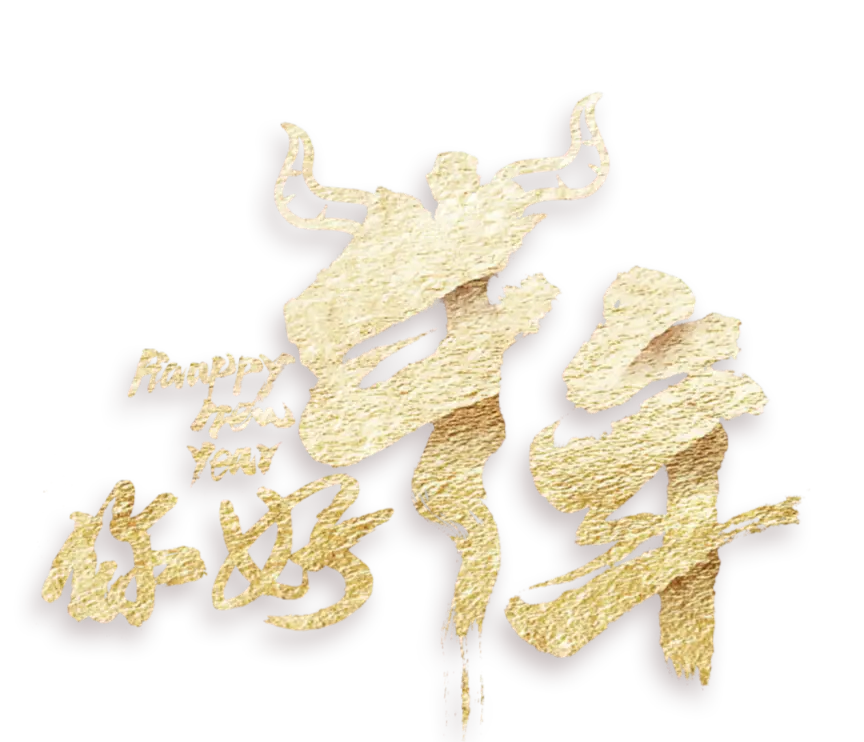 牛年
Hanppy
new
Year
你好